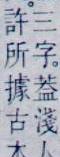 三字。葢淺人
許所據古本